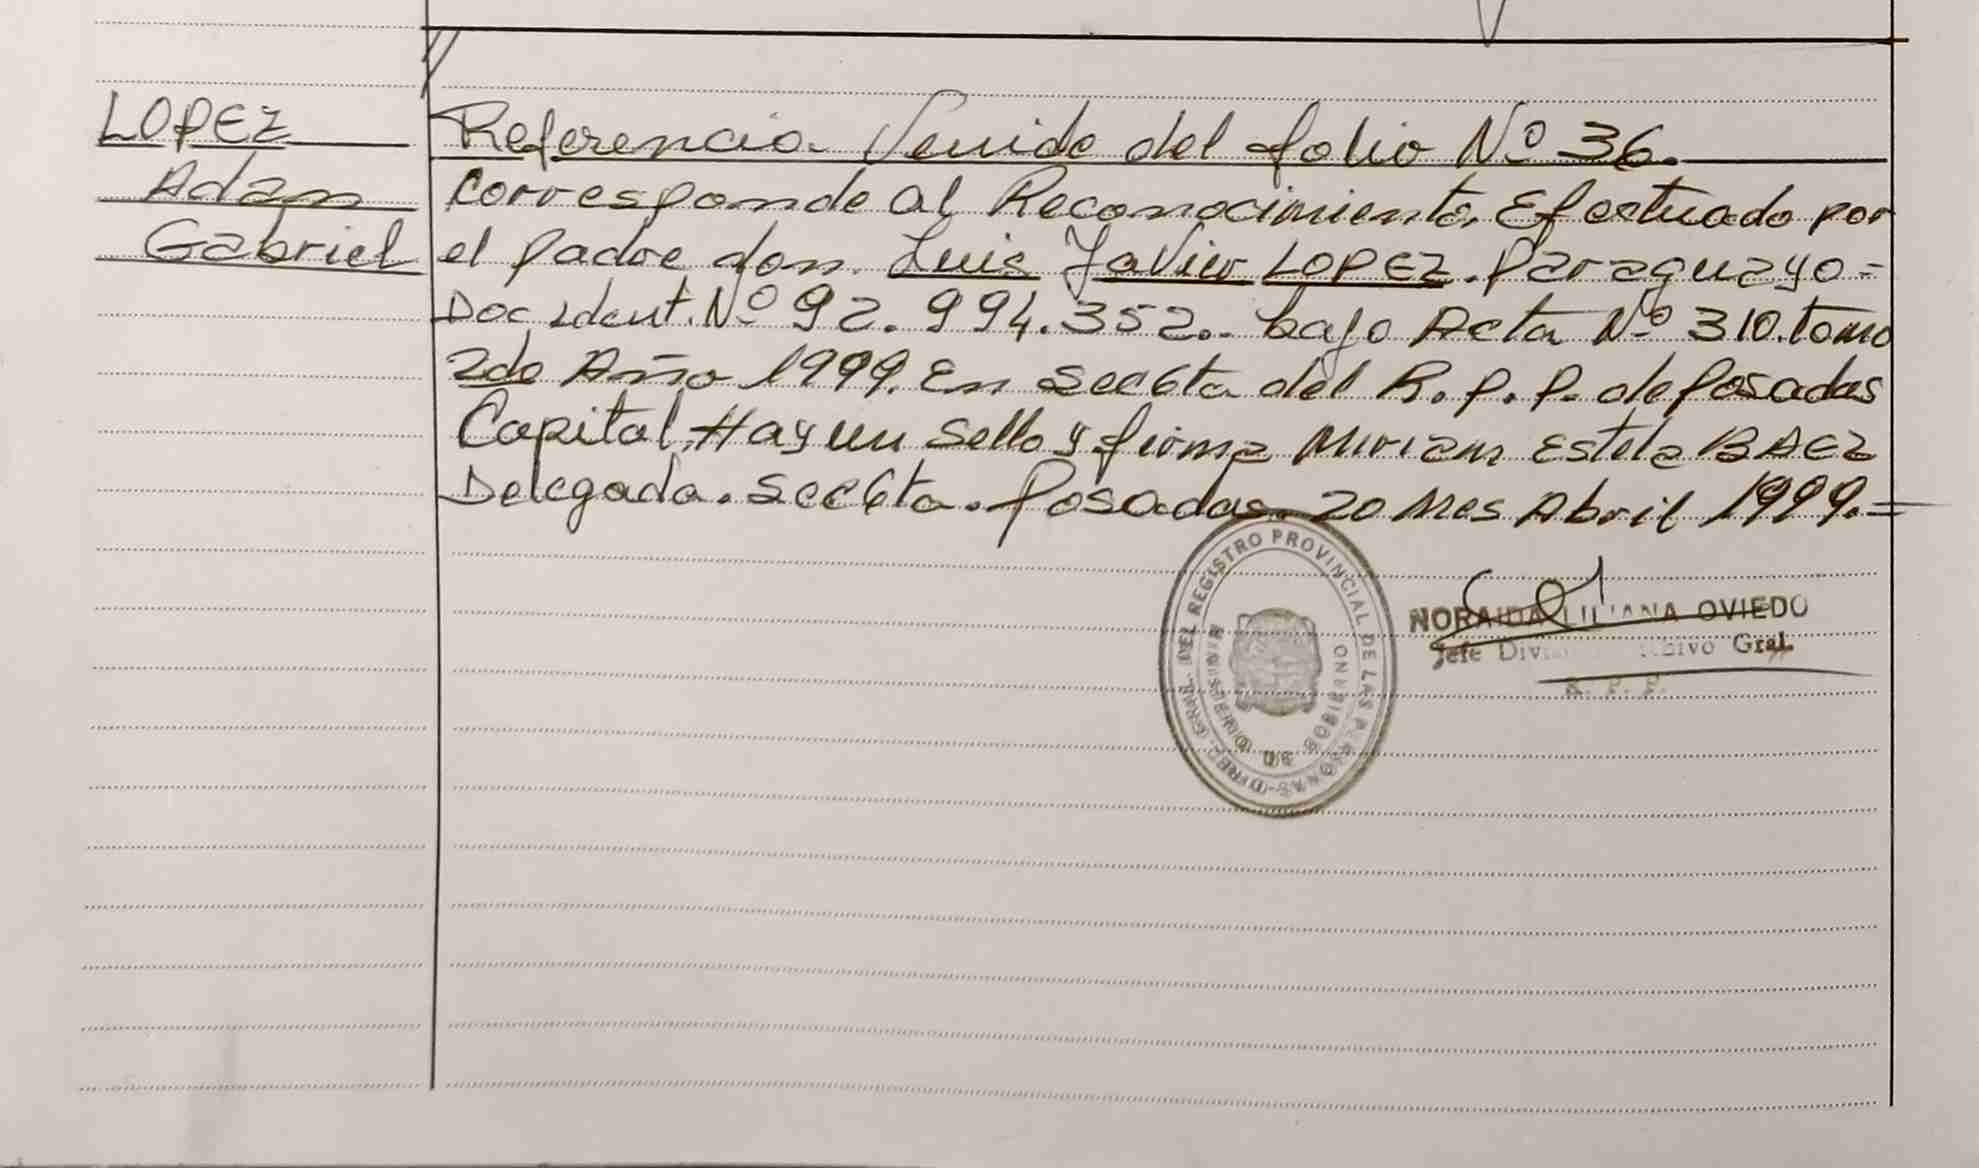 LOPEZ
Adan
Gabriel
Referencia. Venido del folio Nº 36.
Corresponde al Reconocimiento, Efectuado por
el padre don. Luis Javier LOPEZ. Paraguayo=
Doc. Ident. Nº 92.994.352.- bajo Acta Nº 310. tomo
2do Año 1999. En Sec 6ta del R.P.P. de Posadas
Capital, Hay un sello y firma Miriam Estela BAEZ
Delegada. Sec 6ta. Posadas. 20 Mes Abril 1999.=
DIREC. GRAL. DEL REGISTRO PROVINCIAL DE LAS PERSONAS
MINISTERIO DE GOBIERNO
NORAIDA LILIANA OVIEDO
Jefe Gral.
R. P. P.